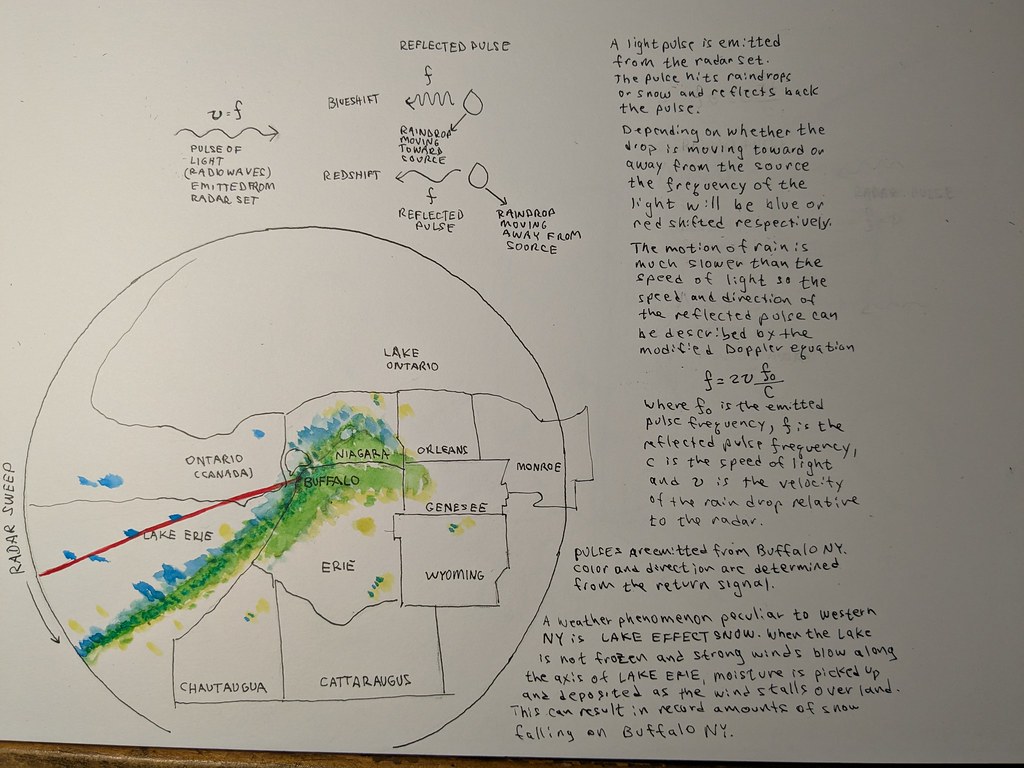 REFLECTED PULSE
f
BLUESHIFT
RAINDROP
MOVING
TOWARD
SOURCE
v=f
PULSE OF
LIGHT
(RADIOWAVES)
EMITTED FROM
RADAR SET
REDSHIFT
f
REFLECTED
PULSE
RAINDROP
MOVING
AWAY FROM
SOORCE
A light pulse is emitted
from the radar set.
The pulse hits raindrops
or snow and reflects back
the pulse.
Depending on whether the
drop is moving toward or
away from the source
the frequency of the
light will be blue or
red shifted respectively.
The motion of rain is
much slower than the
speed of light so the
speed and direction of
the reflected pulse can
be described by the
modified Doppler equation
f = 2v f₀/c
where f₀ is the emitted
pulse frequency, f is the
reflected pulse frequency,
c is the speed of light
and v is the velocity
of the rain drop relative
to the radar.
PULSES are emitted from Buffalo NY.
color and direction are determined
from the return signal.
A weather phenomenon peculiar to western
NY is LAKE EFFECT SNOW. When the Lake
is not frozen and strong winds blow along
the axis of LAKE ERIE, moisture is picked up
and deposited as the wind stalls over land.
This can result in record amounts of snow
falling on Buffalo NY.
RADAR SWEEP
LAKE
ONTARIO
ONTARIO
(CANADA)
NIAGARA
ORLEANS
MONROE
BUFFALO
GENESEE
LAKE ERIE
ERIE
WYOMING
CHAUTAUGUA
CATTARAUGUS